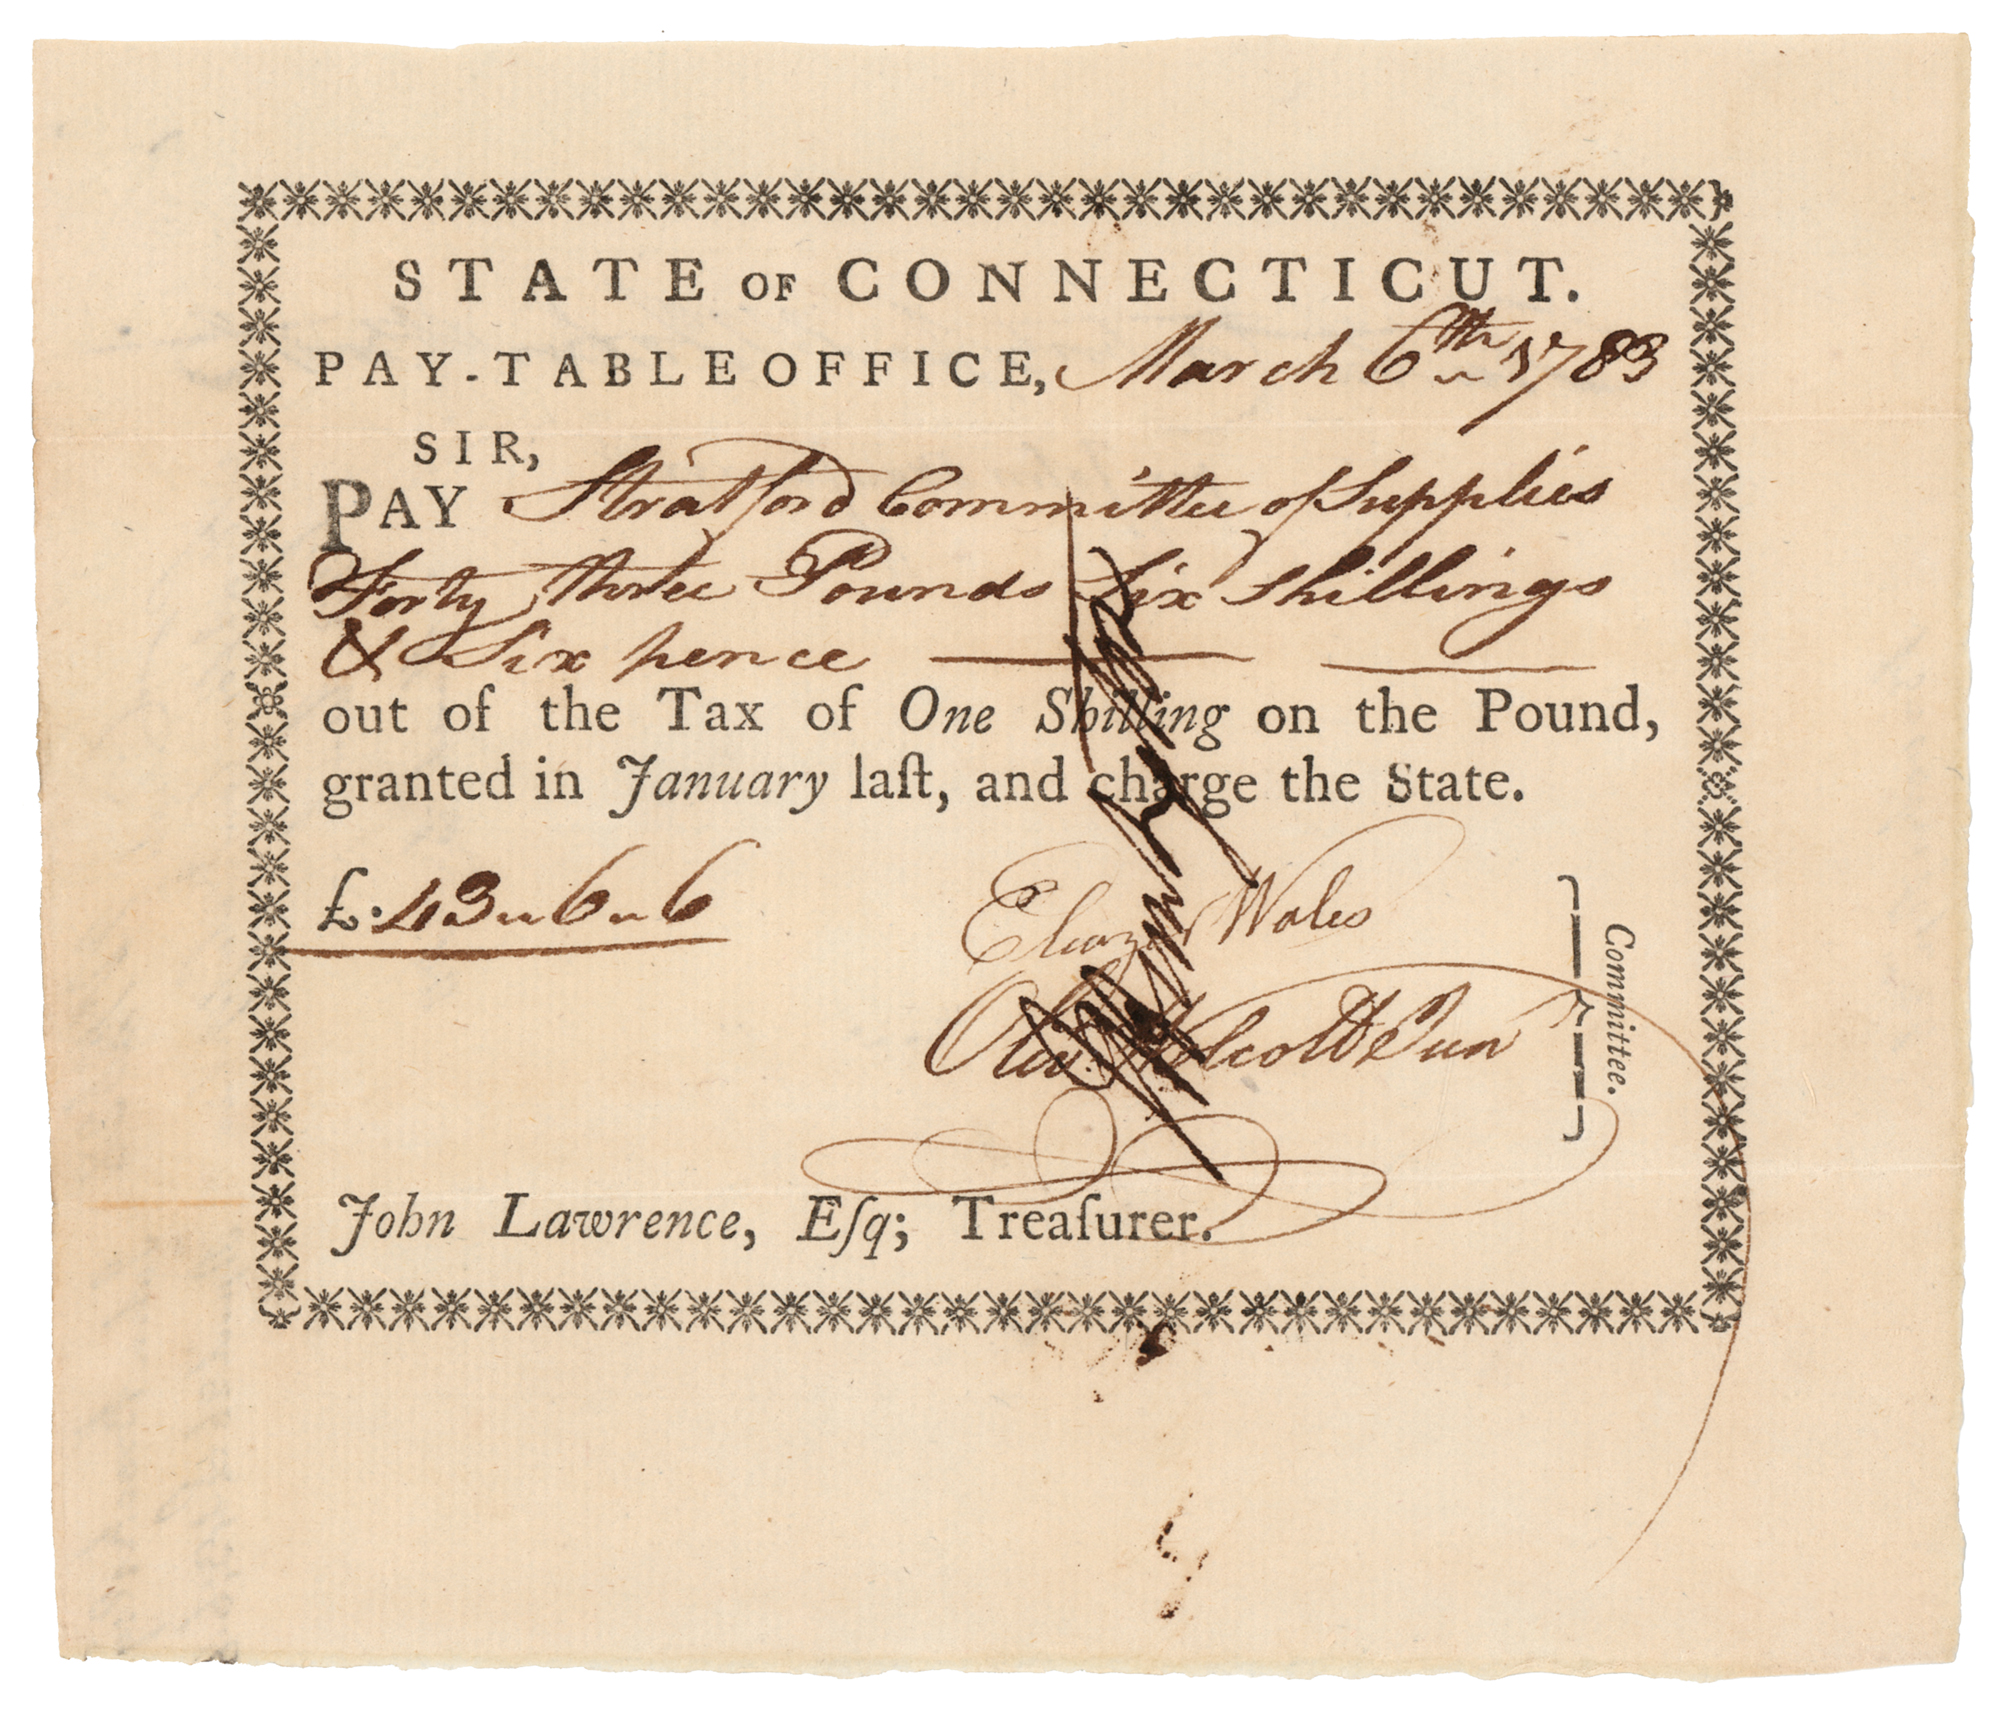 STATE OF CONNECTICUT.
PAY-TABLE OFFICE, March 6th 1783
SIR,
PAY Stratford Committee of Supplies
Forty three Pounds Six Shillings
& Six pence
out of the Tax of One Shilling on the Pound,
granted in January laſt, and charge the State.
£. 43 " 6 " 6
Eleazer Wales
Oliv. Wolcott Junr
Committee.
John Lawrence, Eſq; Treaſurer.